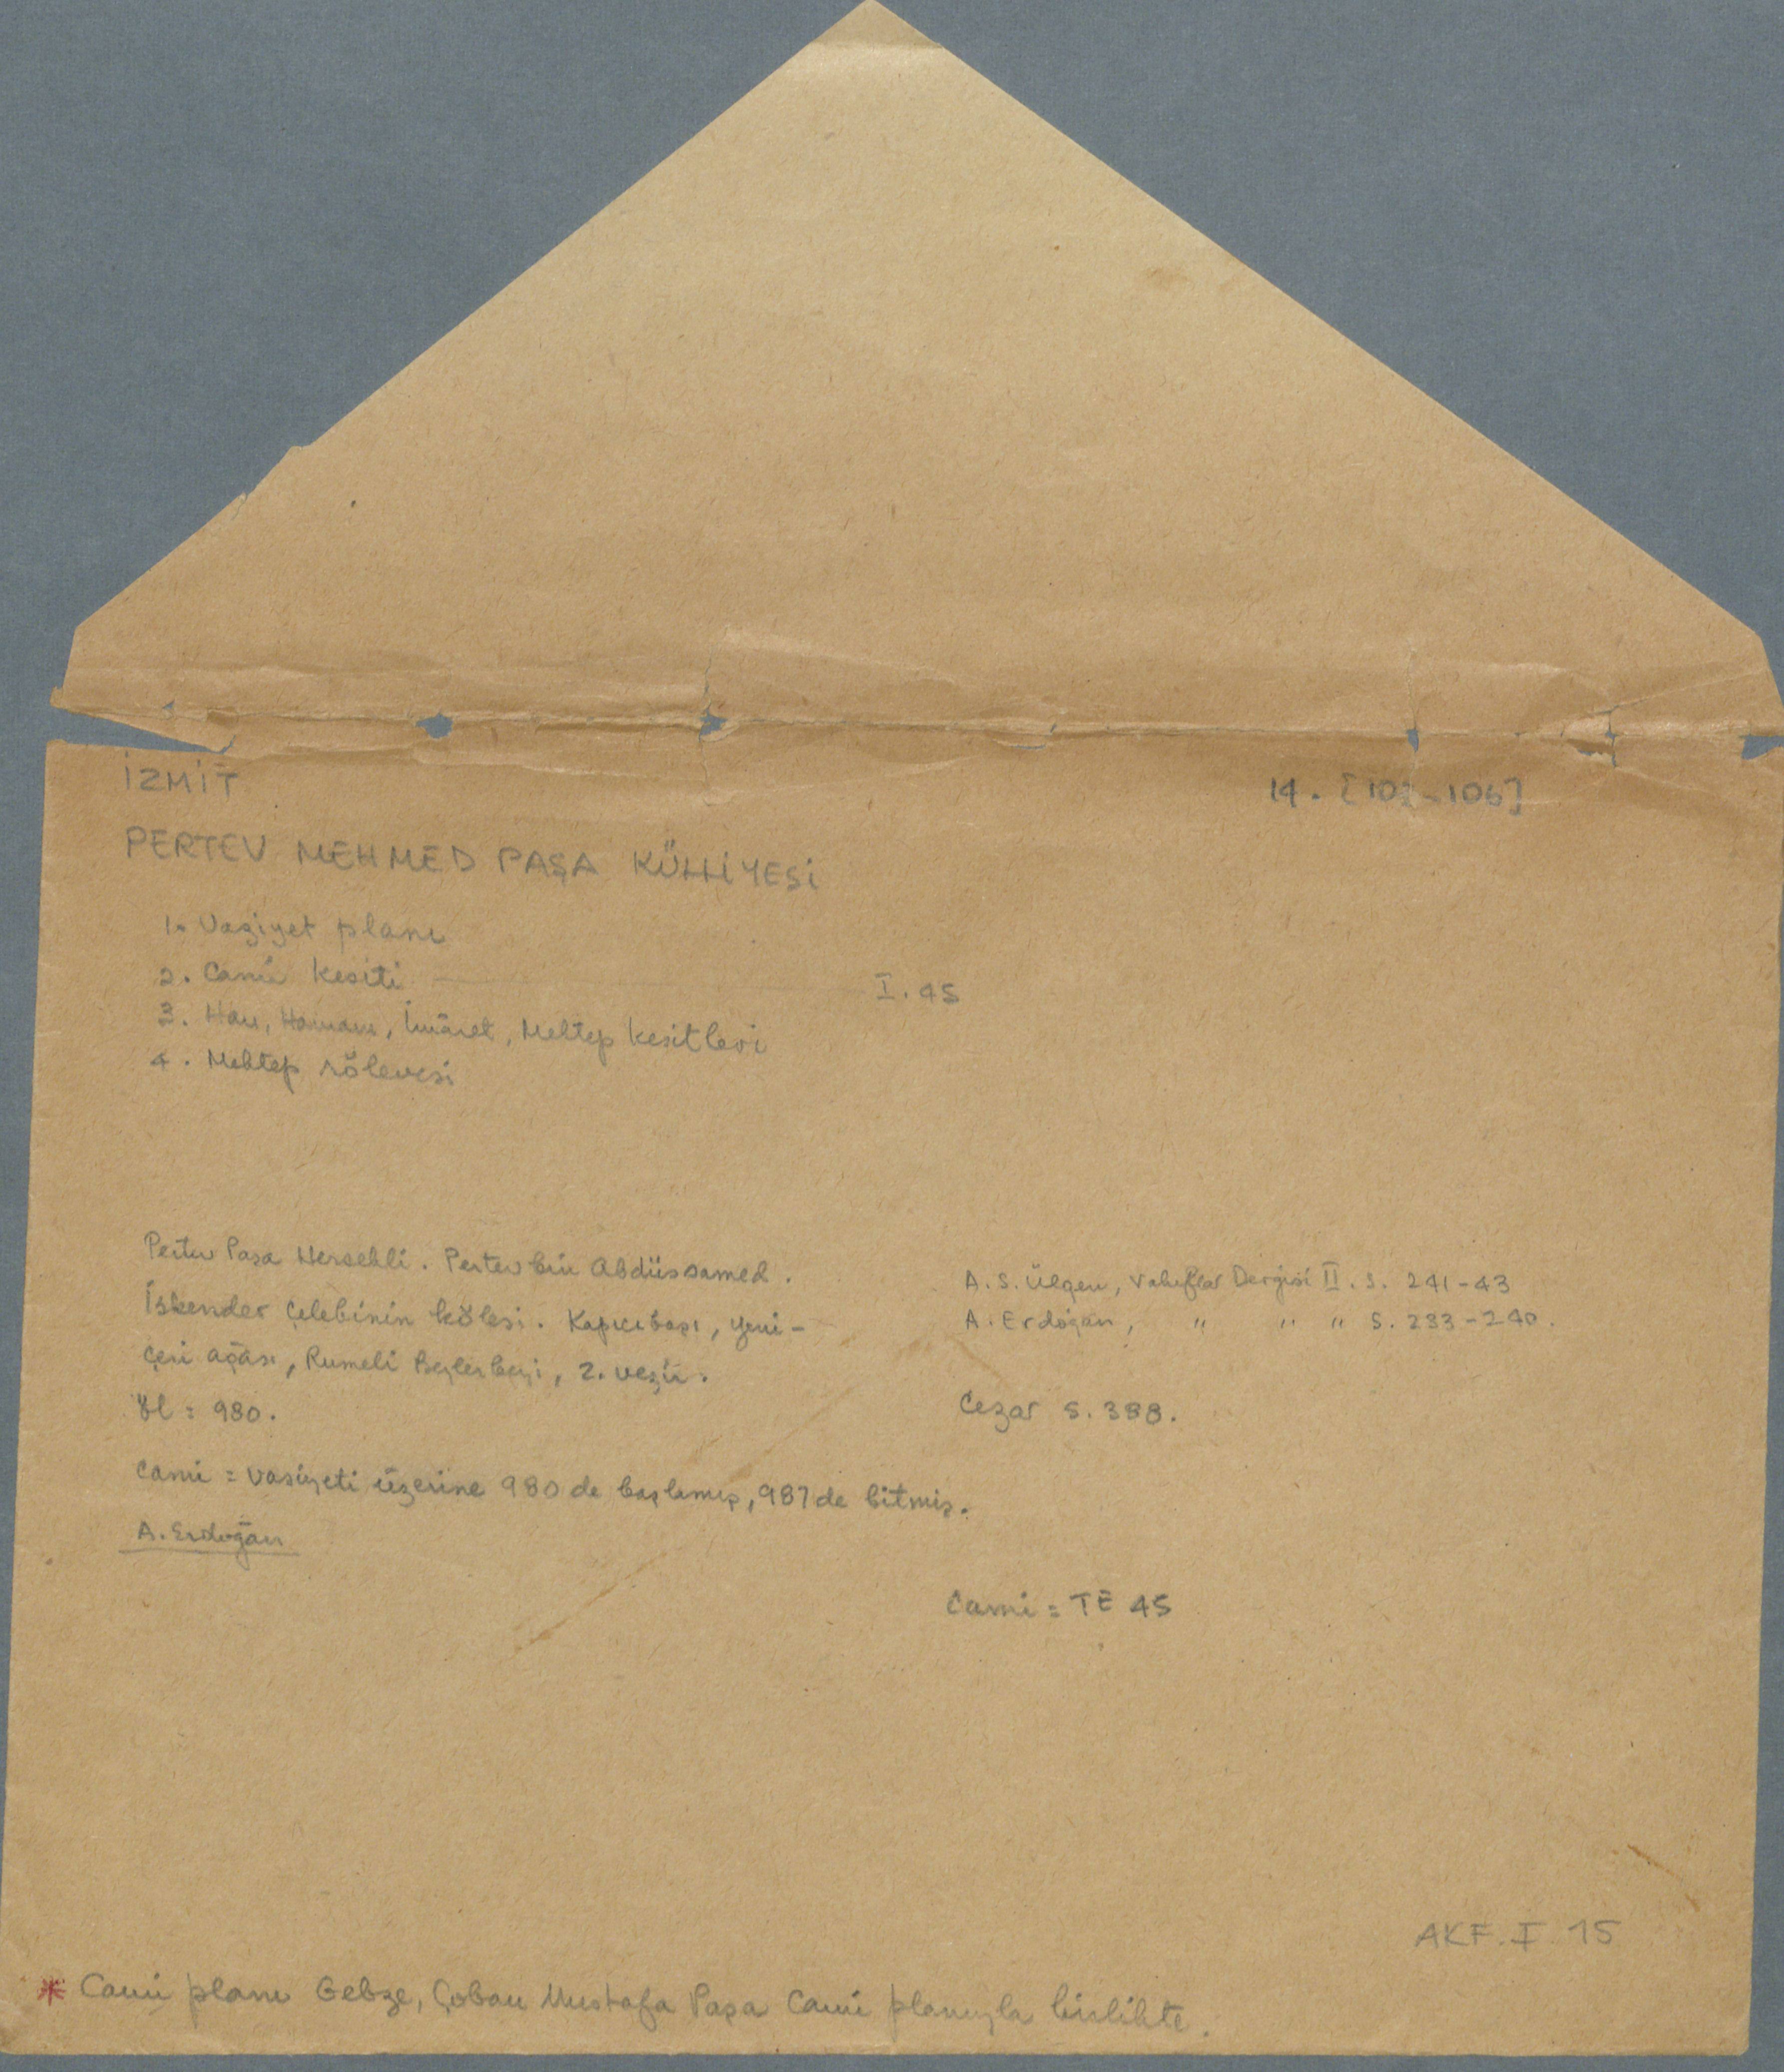 İZMİT
14. [102-106]
PERTEV MEHMED PAŞA KÜLLİYESİ
1. Vaziyet planı
2. Cami kesiti ——— I. 45
3. Han, Hamam, İmâret, Mektep kesitleri
4. Mektep rölevesi
Pertev Paşa Hersekli. Pertev bin Abdüssamed.
İskender Çelebinin kölesi. Kapıcıbaşı, yeni-
çeri ağası, Rumeli Beylerbeyi, 2. vezir.
öl = 980.
A. S. Ülgen, Vakıflar Dergisi II. S. 241-43
A. Erdoğan, " " " S. 233-240.
Cezar S. 388.
Cami = vasiyeti üzerine 980 de başlamış, 987 de bitmiş.
A. Erdoğan
Cami = TE 45
AKF. I 15
* Cami planı Gebze, Çoban Mustafa Paşa Cami planıyla birlikte.